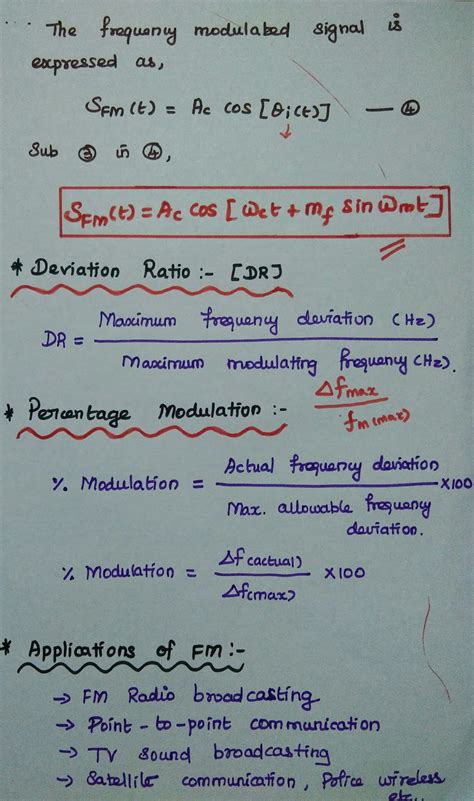 The frequency modulated signal is
expressed as,
S_FM(t) = Ac cos [θi(t)] — ④
Sub ③ in ④,
S_FM(t) = Ac cos [ωct + mf sin ωmt]
* Deviation Ratio :- [DR]
DR = Maximum frequency deviation (Hz) / Maximum modulating frequency (Hz).
Δfmax / fm(max)
* Percentage Modulation :-
% Modulation = Actual frequency deviation / Max. allowable frequency deviation. ×100
% Modulation = Δf(actual) / Δf(max) ×100
* Applications of FM :-
→ FM Radio broadcasting
→ Point-to-point communication
→ TV Sound broadcasting
→ Satellite communication, Police wireless
etc..